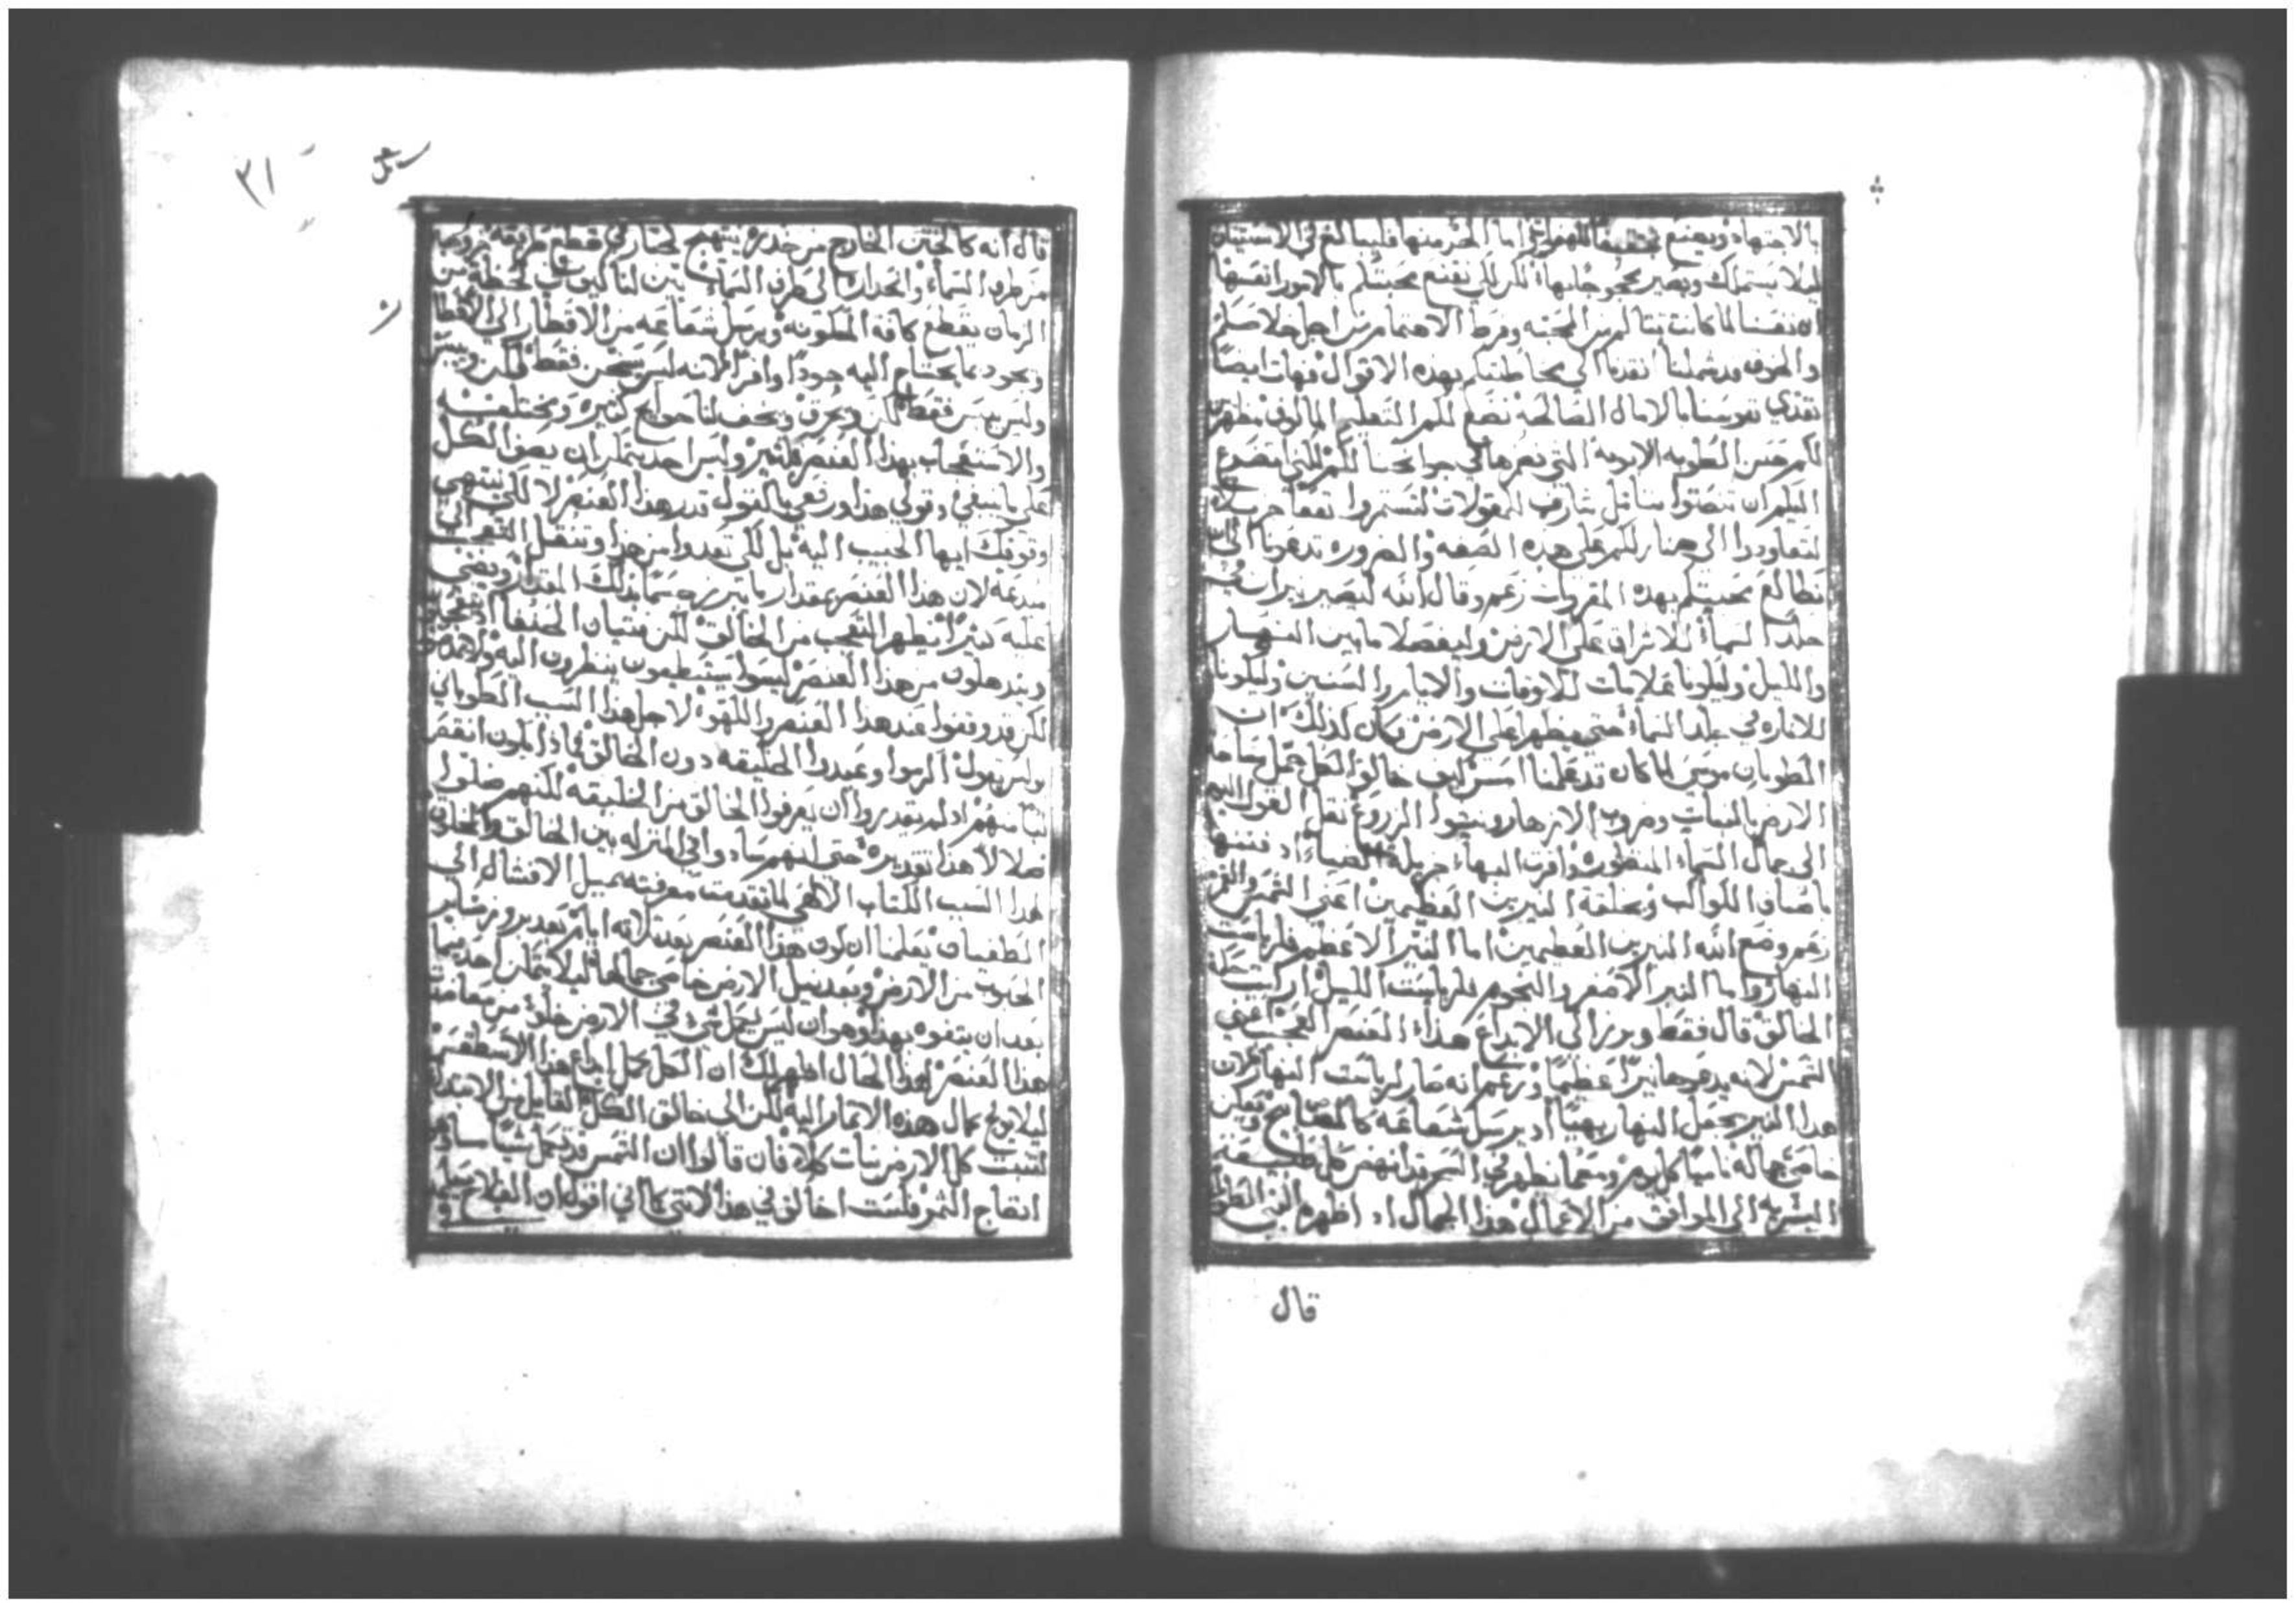 بالاجتهاد ويصنع تخفيفا للهفواتي اما الخير منها فليبالغ في الاستتيان
ليلا يستملك ويصير محجو جانبها لكن لكي نقنع محبتكم بالامور انفسها
ان نفسنا لما كانت تتالم من المحبه وفرط الاهتمام من اجل خلاصكم
والخوف قد شملنا تقدمنا الي مخاطبتكم بهذه الاقوال فهات ايضا
نغذي نفوسنا بالامال الصالحه نضع لكم التعليم المالوف مظهرين
لكم حسن الطويه الابويه التي نعرفها في جوانحنا لكم لكني اتضرع
اليكم ان تنصتوا بتامل ثاقب للمقولات لتستثمروا نفعا جزيلا
لتعاودوا الي منازلكم على هذه الصفه والضروره تدعونا الي ان
نطالع محبتكم بهذه المقروات زعم وقال الله ليصير نيران في
جلد السماء للاشراق على الارض وليفصلا ما بين النهار
والليل وليكونا علامات للاوقات والايام والسنين وليكونا
للاناره في جلد السماء حتى يظهرا على الارض وكان كذلك ان
الطوبان موسى لما كان قد علمنا امس كيف خالق الكل جمل سماجة
الارض بالنبات وضروب الازهار ونبتوا الزروع نقل القول اليوم
الى جمال السماء المنظوره وافرت البهاء جزيلة الضياء اذ زينها
باصناف الكواكب وبخلقة النيرين العظيمين اعنى الشمس والقمر
زعم وضع الله النيرين العظيمين اما النير الاعظم فلرياست
النهار واما النير الاصغر والنجوم فلرياست الليل ارايت حكمة
الخالق قال فقط وبرز الى الابداع هذا العنصر العجيب اعني
الشمس لانه يدعوها نيرا عظيما وزعم انه صار لرياست النهار لان
هذا النير يجعل النهار بهيا اذ يرسل شعاعه كالمصابيح ويكن
خاصي جماله ناميا كل يوم ومعما يظهر في السحر قد انهض كل طبيعة
البشريه الى الموافق من الاعمال هذا الجمال اذ اظهره النبي المطوب
قال
٣١
قال انه كالختن الخارج من خدره يبتهج لجبار في قطع طريقه خروجه
من طرف السماء وانحداره الى طرف السماء بين لنا كيف في لحظه من
الزمان يقطع كافة المسكونه ويرسل شعاعه من الاقطار الى الاقطار
ويجود بما يحتاج اليه جودا وافرا لانه ليس يسخن فقط لكن وييبس
وليس ييبس فقط لكن ويحرق ويخف لنا حوايج كثيره ومختلفه
والاستعجاب بهذا العنصر كثير وليس احد يتمكن ان يصف الكل
على ما ينبغي وقولي هذا ورفعي بالقول قدر هذا العنصر لا لكي ينتهي
وتوفك ايها الحبيب اليه بل لكي تغدوا من هذا وتنقل التعجب الى
مبدعه لان هذا العنصر بمقدار ما تبرزه سما بذلك المقدار ويضي
عليه كثيرا يظهر التعجب من الخالق لكن فتيان الحنفا اذ يتعجبون
ويندهلون من هذا العنصر ليسوا يستطيعون ينظرون اليه ولا يمجدوه
لكن قد وقفوا عند هذا العنصر والهوه لاجل هذا السبب الطوباني
بولس يقول اكرموا وعبدوا الخليقه دون الخالق فماذا يكون انقص
لبا منهم اذ لم يقدروا ان يعرفوا الخالق من الخليقه لكنهم ضلوا
ضلالا هذا تقديره حتى انهم ساووا في المنزله بين الخالق والمخلوق
هذا السبب الكتاب الالهي لما تقدمت معرفته بميل الافشال الى
الطغيان يعلمنا ان كون هذا العنصر بعد ثلاثه ايام بعد بروز ساير
الحبوب من الارض وبعد نيل الارض خاصي جمالها ليلا يتمكن احد فيما
بعد ان يتفوه بهذا وهو ان ليس يكمل شي في الارض خلوا من معاضدة
هذا العنصر لهذا الحال اظهر لك ان الكل كمل قبل ابداع هذا الاسطقس
ليلا نوح كمال هذه الاثمار اليه لكن الى خالق الكل القايل من الابتدا
لتنبت كل الارض نبات كلا فان قالوا ان الشمس قد تعمل شيا ساق هو
انضاج الثمر فلست اخالف في هذا لانني كما اني اقول ان الفلاح يعمل